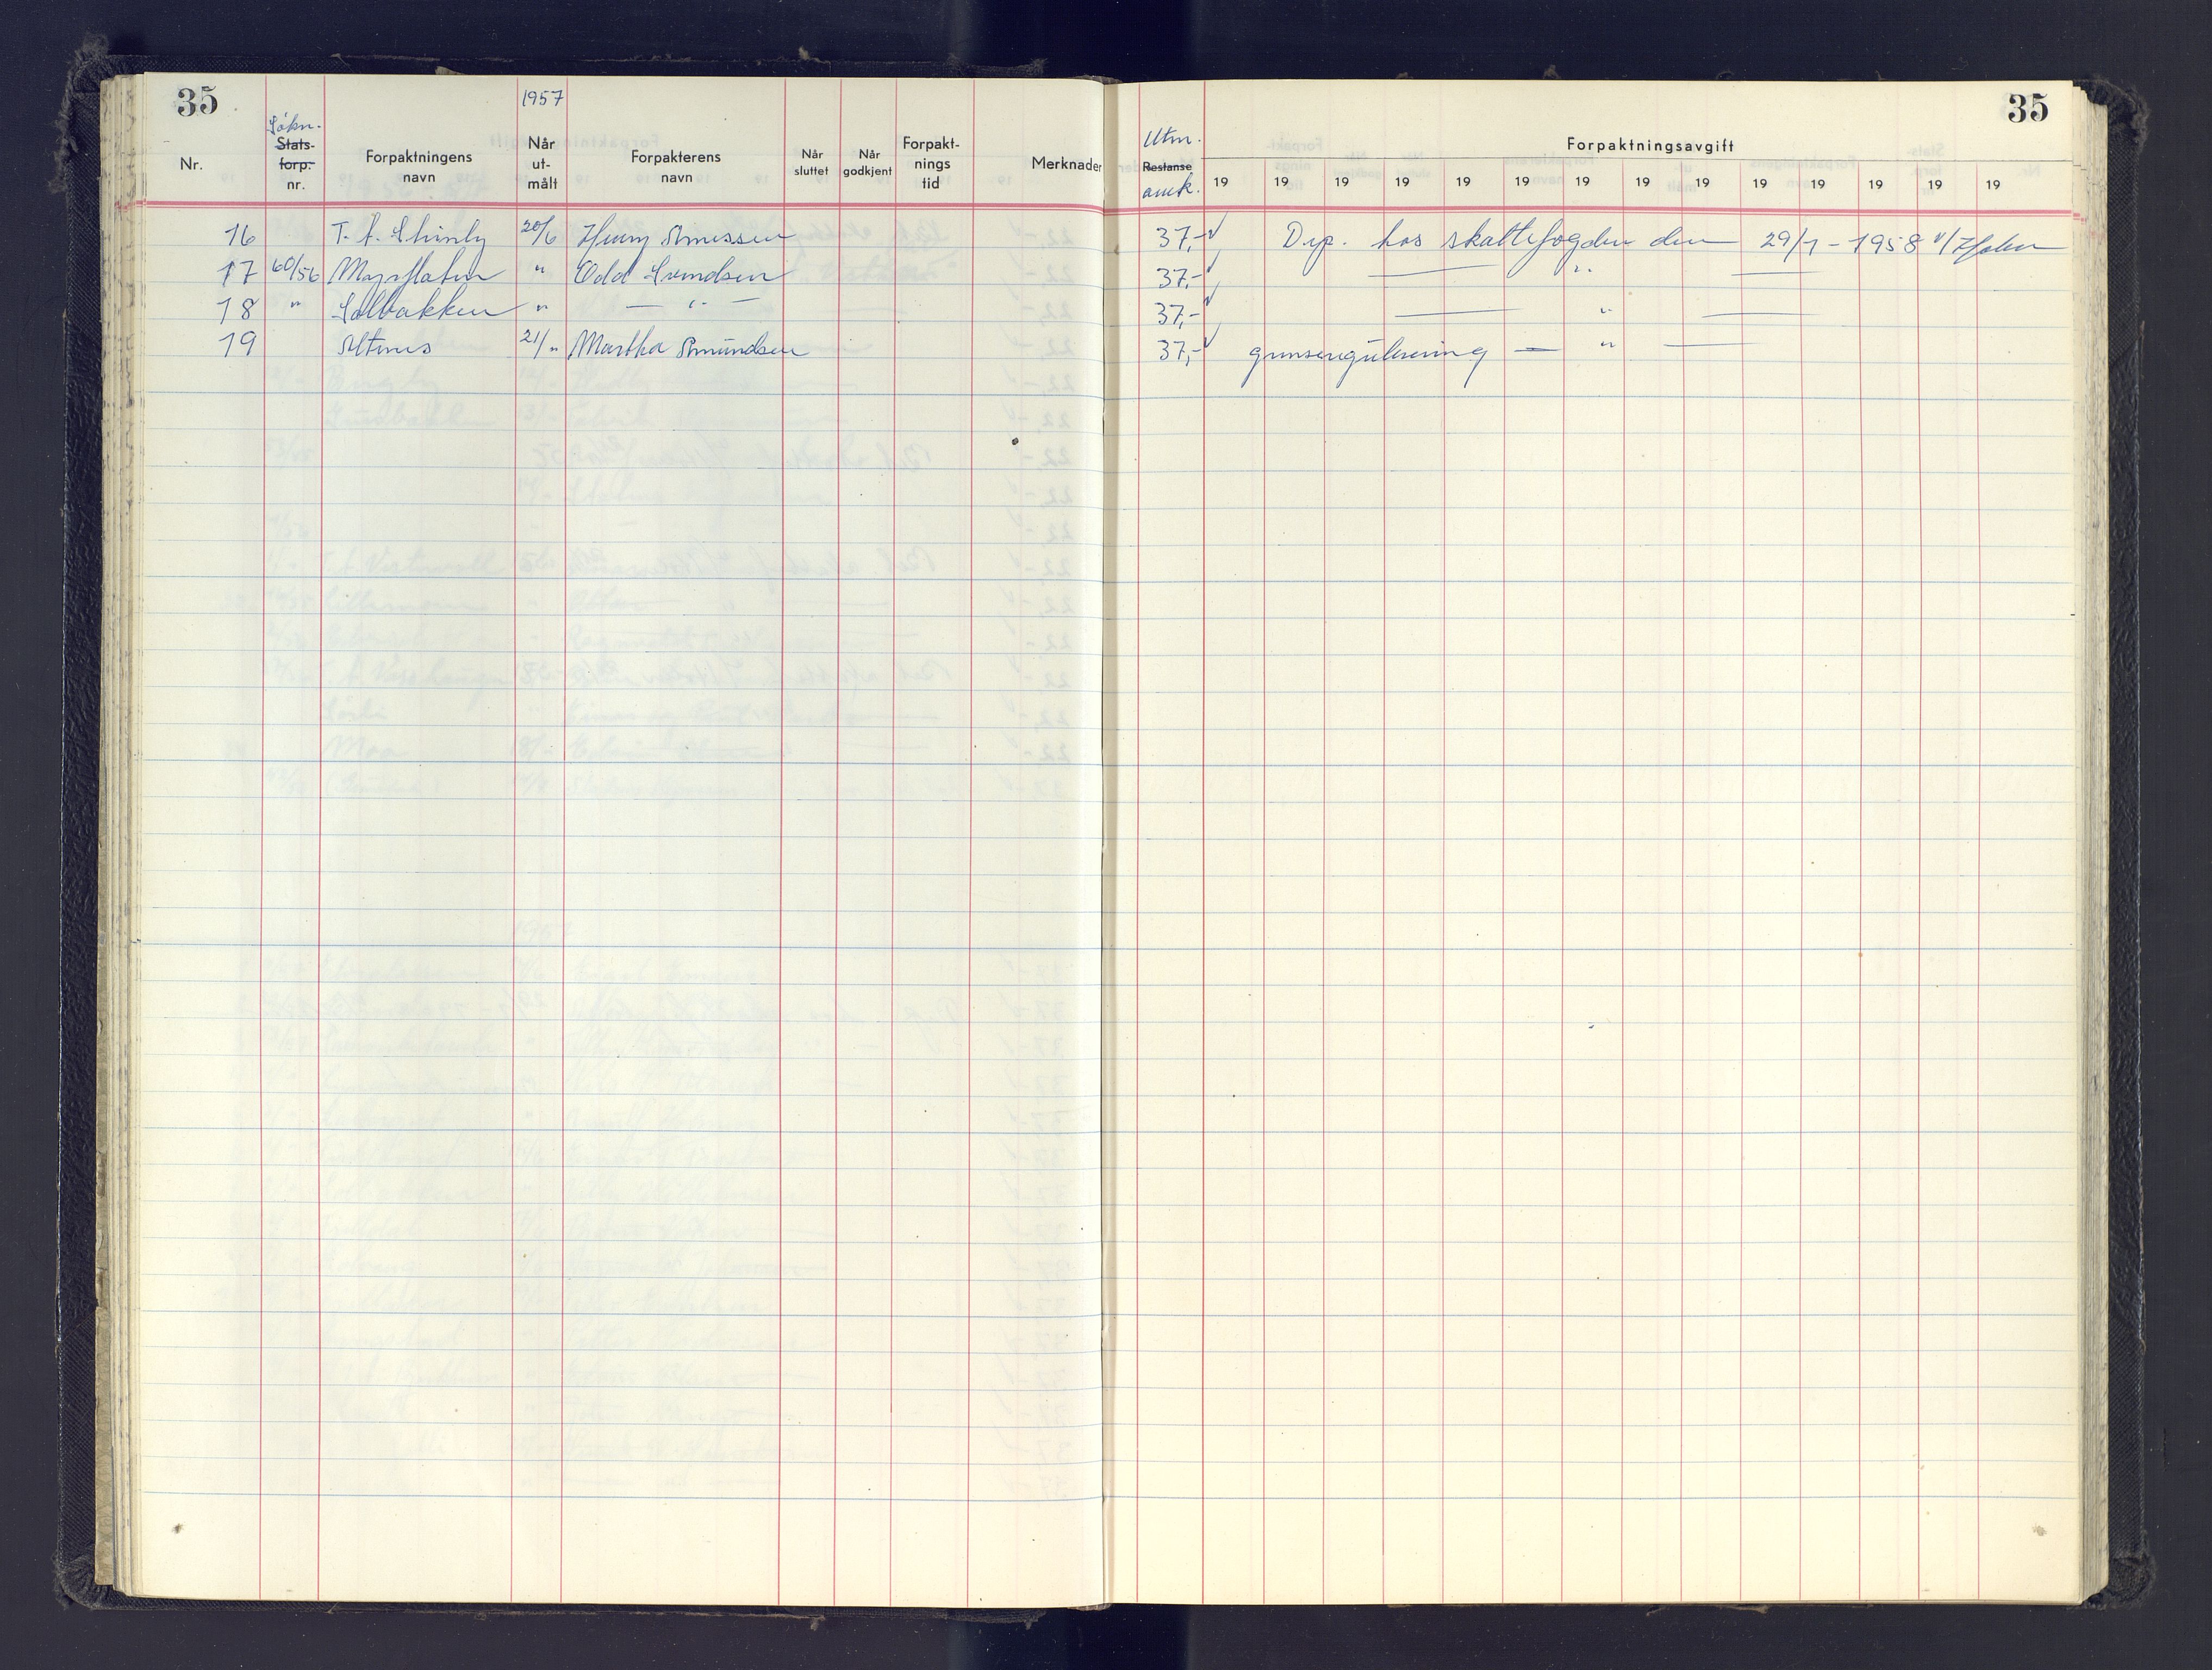 35
1957
Søkn.
Nr.
Stats-
forp.
nr.
Forpaktningens
navn
Når
ut-
målt
Forpakterens
navn
Når
sluttet
Når
godkjent
Forpakt-
nings
tid
Merknader
16 T. f. 20/6 Henny Arnessen
17 60/56 Mosflaten " Odd Svendsen
18 " Solbakken " — " —
19 Altnes 21/" Martha Amundsen
35
Utm.
Restanse
ansk.
Forpaktningsavgift
19 19 19 19 19 19 19 19 19 19 19 19 19 19
37,- Dep. hos skattefogden den 29/1-1958 v/Holen
37,- — " —
37,- — " —
37,- grenseregulering — " —